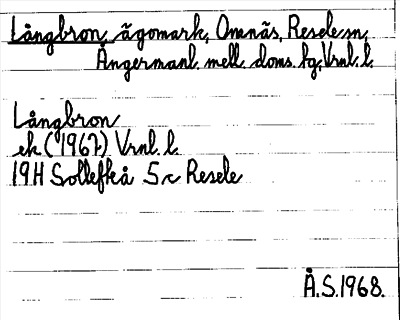 Långbron, ägomark, Omnäs, Resele sn,
Ångermanl. mell. doms. fg, Vrnl. l.
Långbron
ek (1967) Vrnl. l.
19H Sollefteå 5 c Resele
Å.S. 1968.